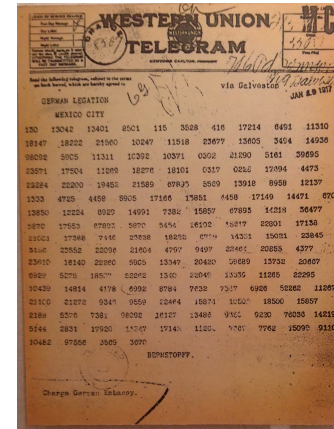 WESTERN UNION
TELEGRAM
NEWCOMB CARLTON, PRESIDENT
Send the following telegram, subject to the terms
on back hereof, which are hereby agreed to
via Galveston
JAN 19 1917
GERMAN LEGATION
MEXICO CITY
130 13042 13401 8501 115 3528 416 17214 6491 11310
18147 18222 21560 10247 11518 23677 13605 3494 14936
98092 5905 11311 10392 10371 0302 21290 5161 39695
23571 17504 11269 18276 18101 0317 0228 17694 4473
22284 22200 19452 21589 67893 5569 13918 8958 12137
1333 4725 4458 5905 17166 13851 4458 17149 14471 6706
13850 12224 6929 14991 7382 15857 67893 14218 36477
5870 17553 67893 5870 5454 16102 15217 22801 17138
21001 17388 7446 23638 18222 6719 14331 15021 23845
3156 23552 22096 21604 4797 9497 22464 20855 4377
23610 18140 22260 5905 13347 20420 39689 13732 20667
6929 5275 18507 52262 1340 22049 13339 11265 22295
10439 14814 4178 6992 8784 7632 7357 6926 52262 11267
21100 21272 9346 9559 22464 15874 18502 18500 15857
2188 5376 7381 98092 16127 13486 9350 9220 76036 14219
5144 2831 17920 11347 17142 11264 7667 7762 15099 9110
10482 97556 3569 3670
BEPNSTOPFF.
Charge German Embassy.